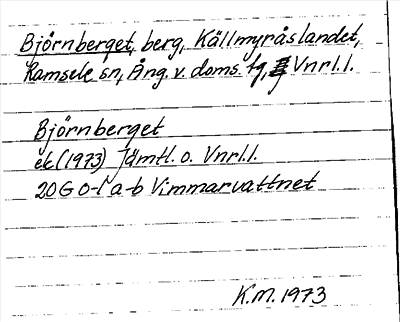 Björnberget, berg, Källmyråslandet,
Ramsele sn, Ång. v. doms. tg, Vnrl.l.
Björnberget
ek (1973) Jämtl. o. Vnrl.l.
20G 0-1 a-b Vimmarvattnet
K.M. 1973